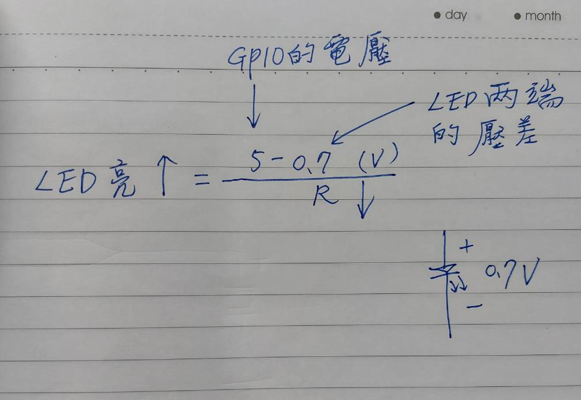 day month
GPIO的電壓
LED两端
的壓差
LED亮 ↑ = 5-0.7 (V)
R ↓
+
0.7V
-